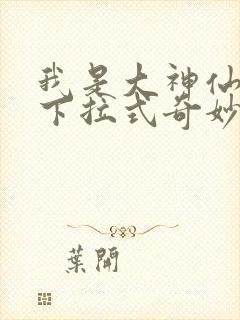 我是大神仙
下拉式奇妙
葉開